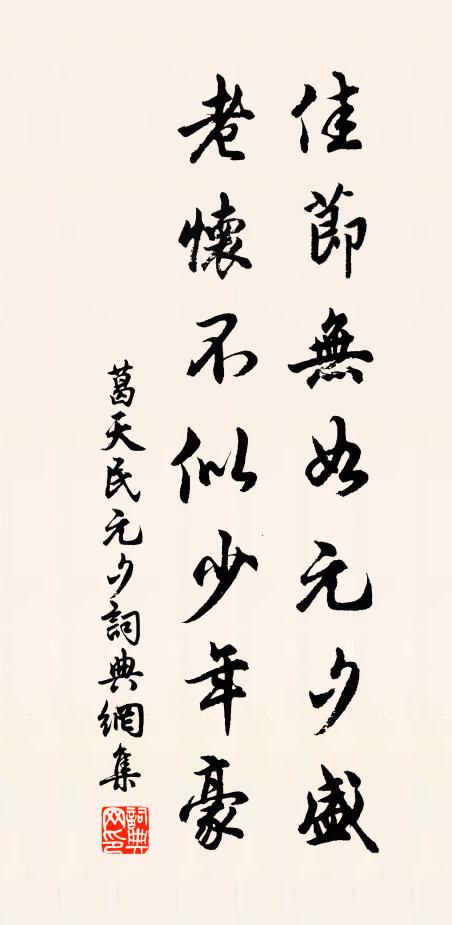 佳節無如元夕盛
老懷不似少年豪
葛天民元夕詞典網集
詞典網印